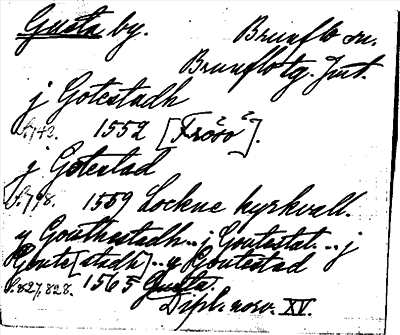 Gusta by. Brunflo sn.
Brunflo tg. Jmt.
j Gotestadh
S. 742. 1552 [Frösö].
j Gotestad
S. 798. 1559 Lockne kyrkvall.
y Gouthestadh.. j Goutestat... j
Goute[stadh]... y Goutestad
S. 827, 828. 1565 Gusta.
Dipl. norv. XV.